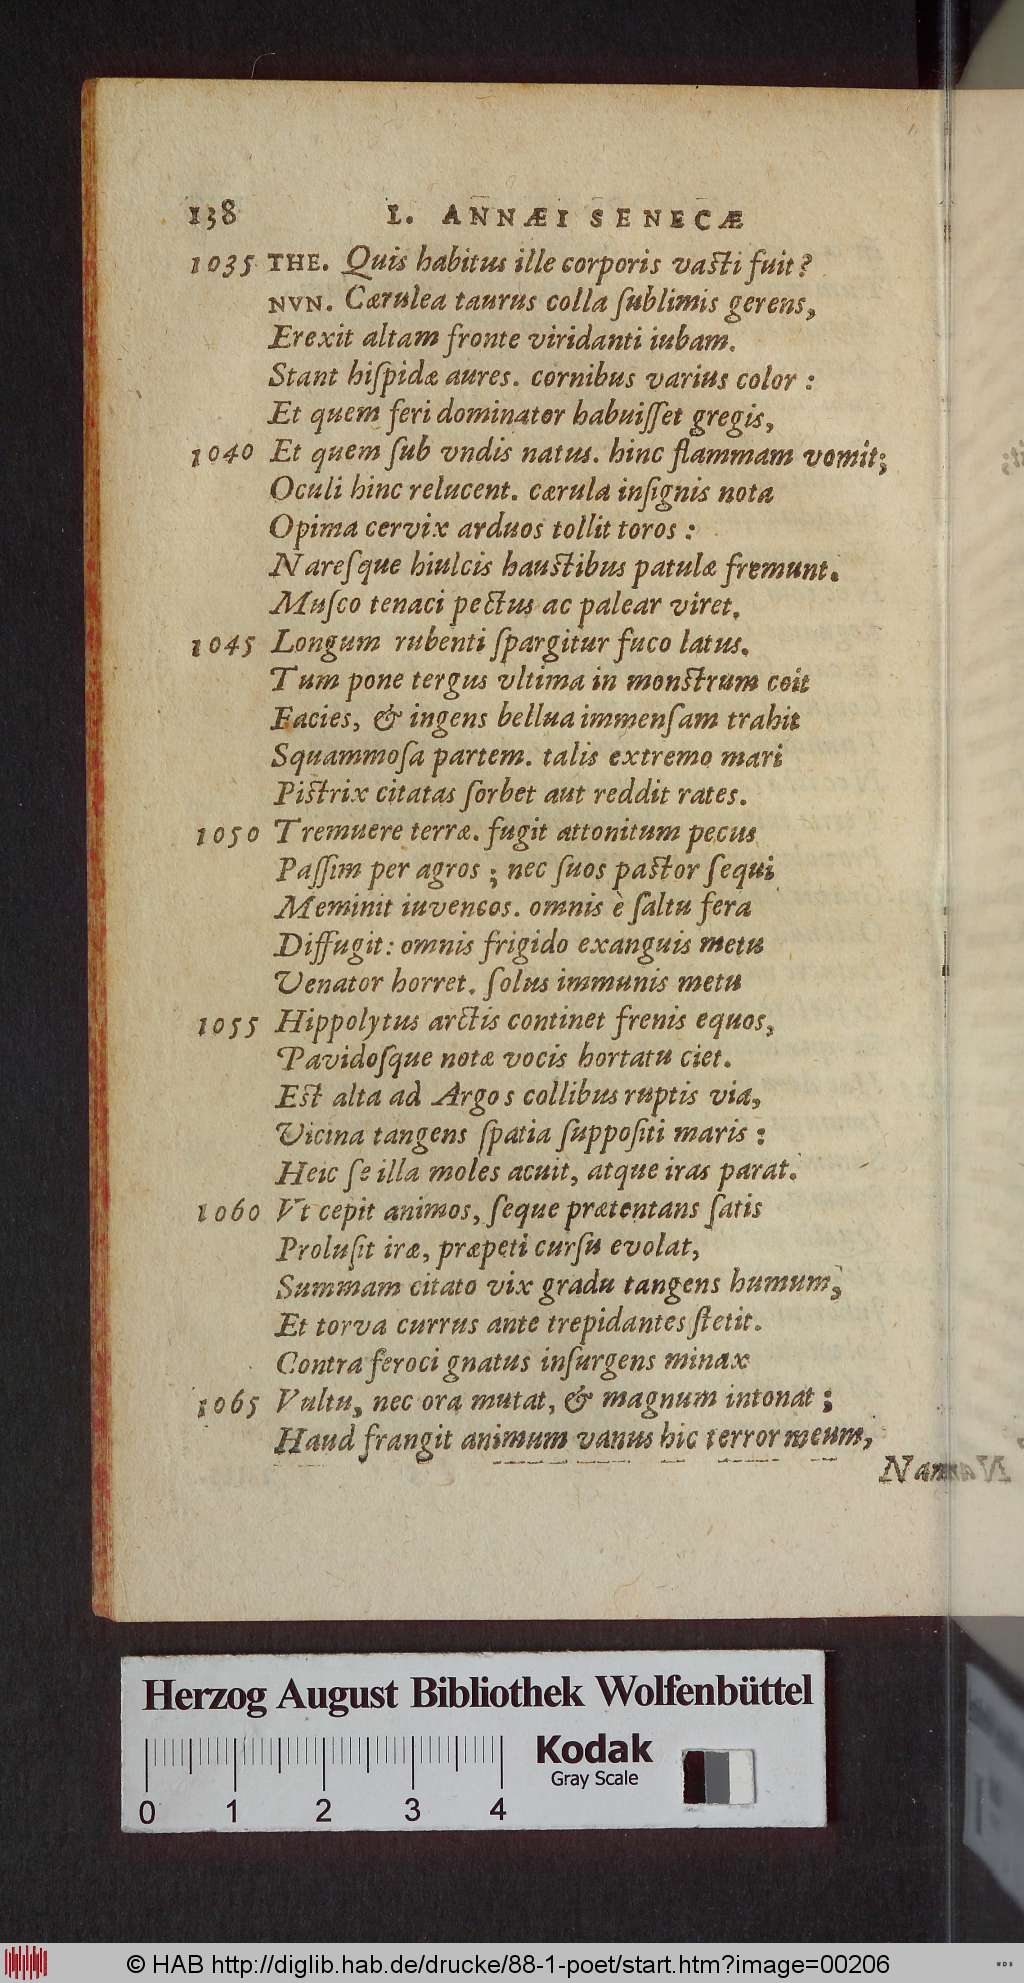 138 L. ANNÆI SENECÆ
1035 THE. Quis habitus ille corporis vasti fuit?
NVN. Cærulea taurus colla ſublimis gerens,
Erexit altam fronte viridanti iubam.
Stant hiſpidæ aures. cornibus varius color :
Et quem feri dominator habuiſſet gregis,
1040 Et quem ſub vndis natus. hinc flammam vomit;
Oculi hinc relucent. cærula inſignis nota
Opima cervix arduos tollit toros :
Nareſque hiulcis haustibus patulæ fremunt.
Muſco tenaci pectus ac palear viret.
1045 Longum rubenti ſpargitur fuco latus.
Tum pone tergus vltima in monstrum coit
Facies, & ingens bellua immenſam trahit
Squammoſa partem. talis extremo mari
Pistrix citatas ſorbet aut reddit rates.
1050 Tremuere terræ. fugit attonitum pecus
Paſſim per agros ; nec ſuos pastor ſequi
Meminit iuvencos. omnis è ſaltu fera
Diffugit: omnis frigido exanguis metu
Venator horret. ſolus immunis metu
1055 Hippolytus arctis continet frenis equos,
Pavidoſque notæ vocis hortatu ciet.
Est alta ad Argos collibus ruptis via,
Vicina tangens ſpatia ſuppoſiti maris :
Heic ſe illa moles acuit, atque iras parat.
1060 Vt cepit animos, ſeque prætentans ſatis
Proluſit iræ, præpeti curſu evolat,
Summam citato vix gradu tangens humum,
Et torva currus ante trepidantes ſtetit.
Contra feroci gnatus inſurgens minax
1065 Vultu, nec ora mutat, & magnum intonat ;
Haud frangit animum vanus hic terror meum,
Nam
Herzog August Bibliothek Wolfenbüttel
Kodak
Gray Scale
0 1 2 3 4
© HAB http://diglib.hab.de/drucke/88-1-poet/start.htm?image=00206